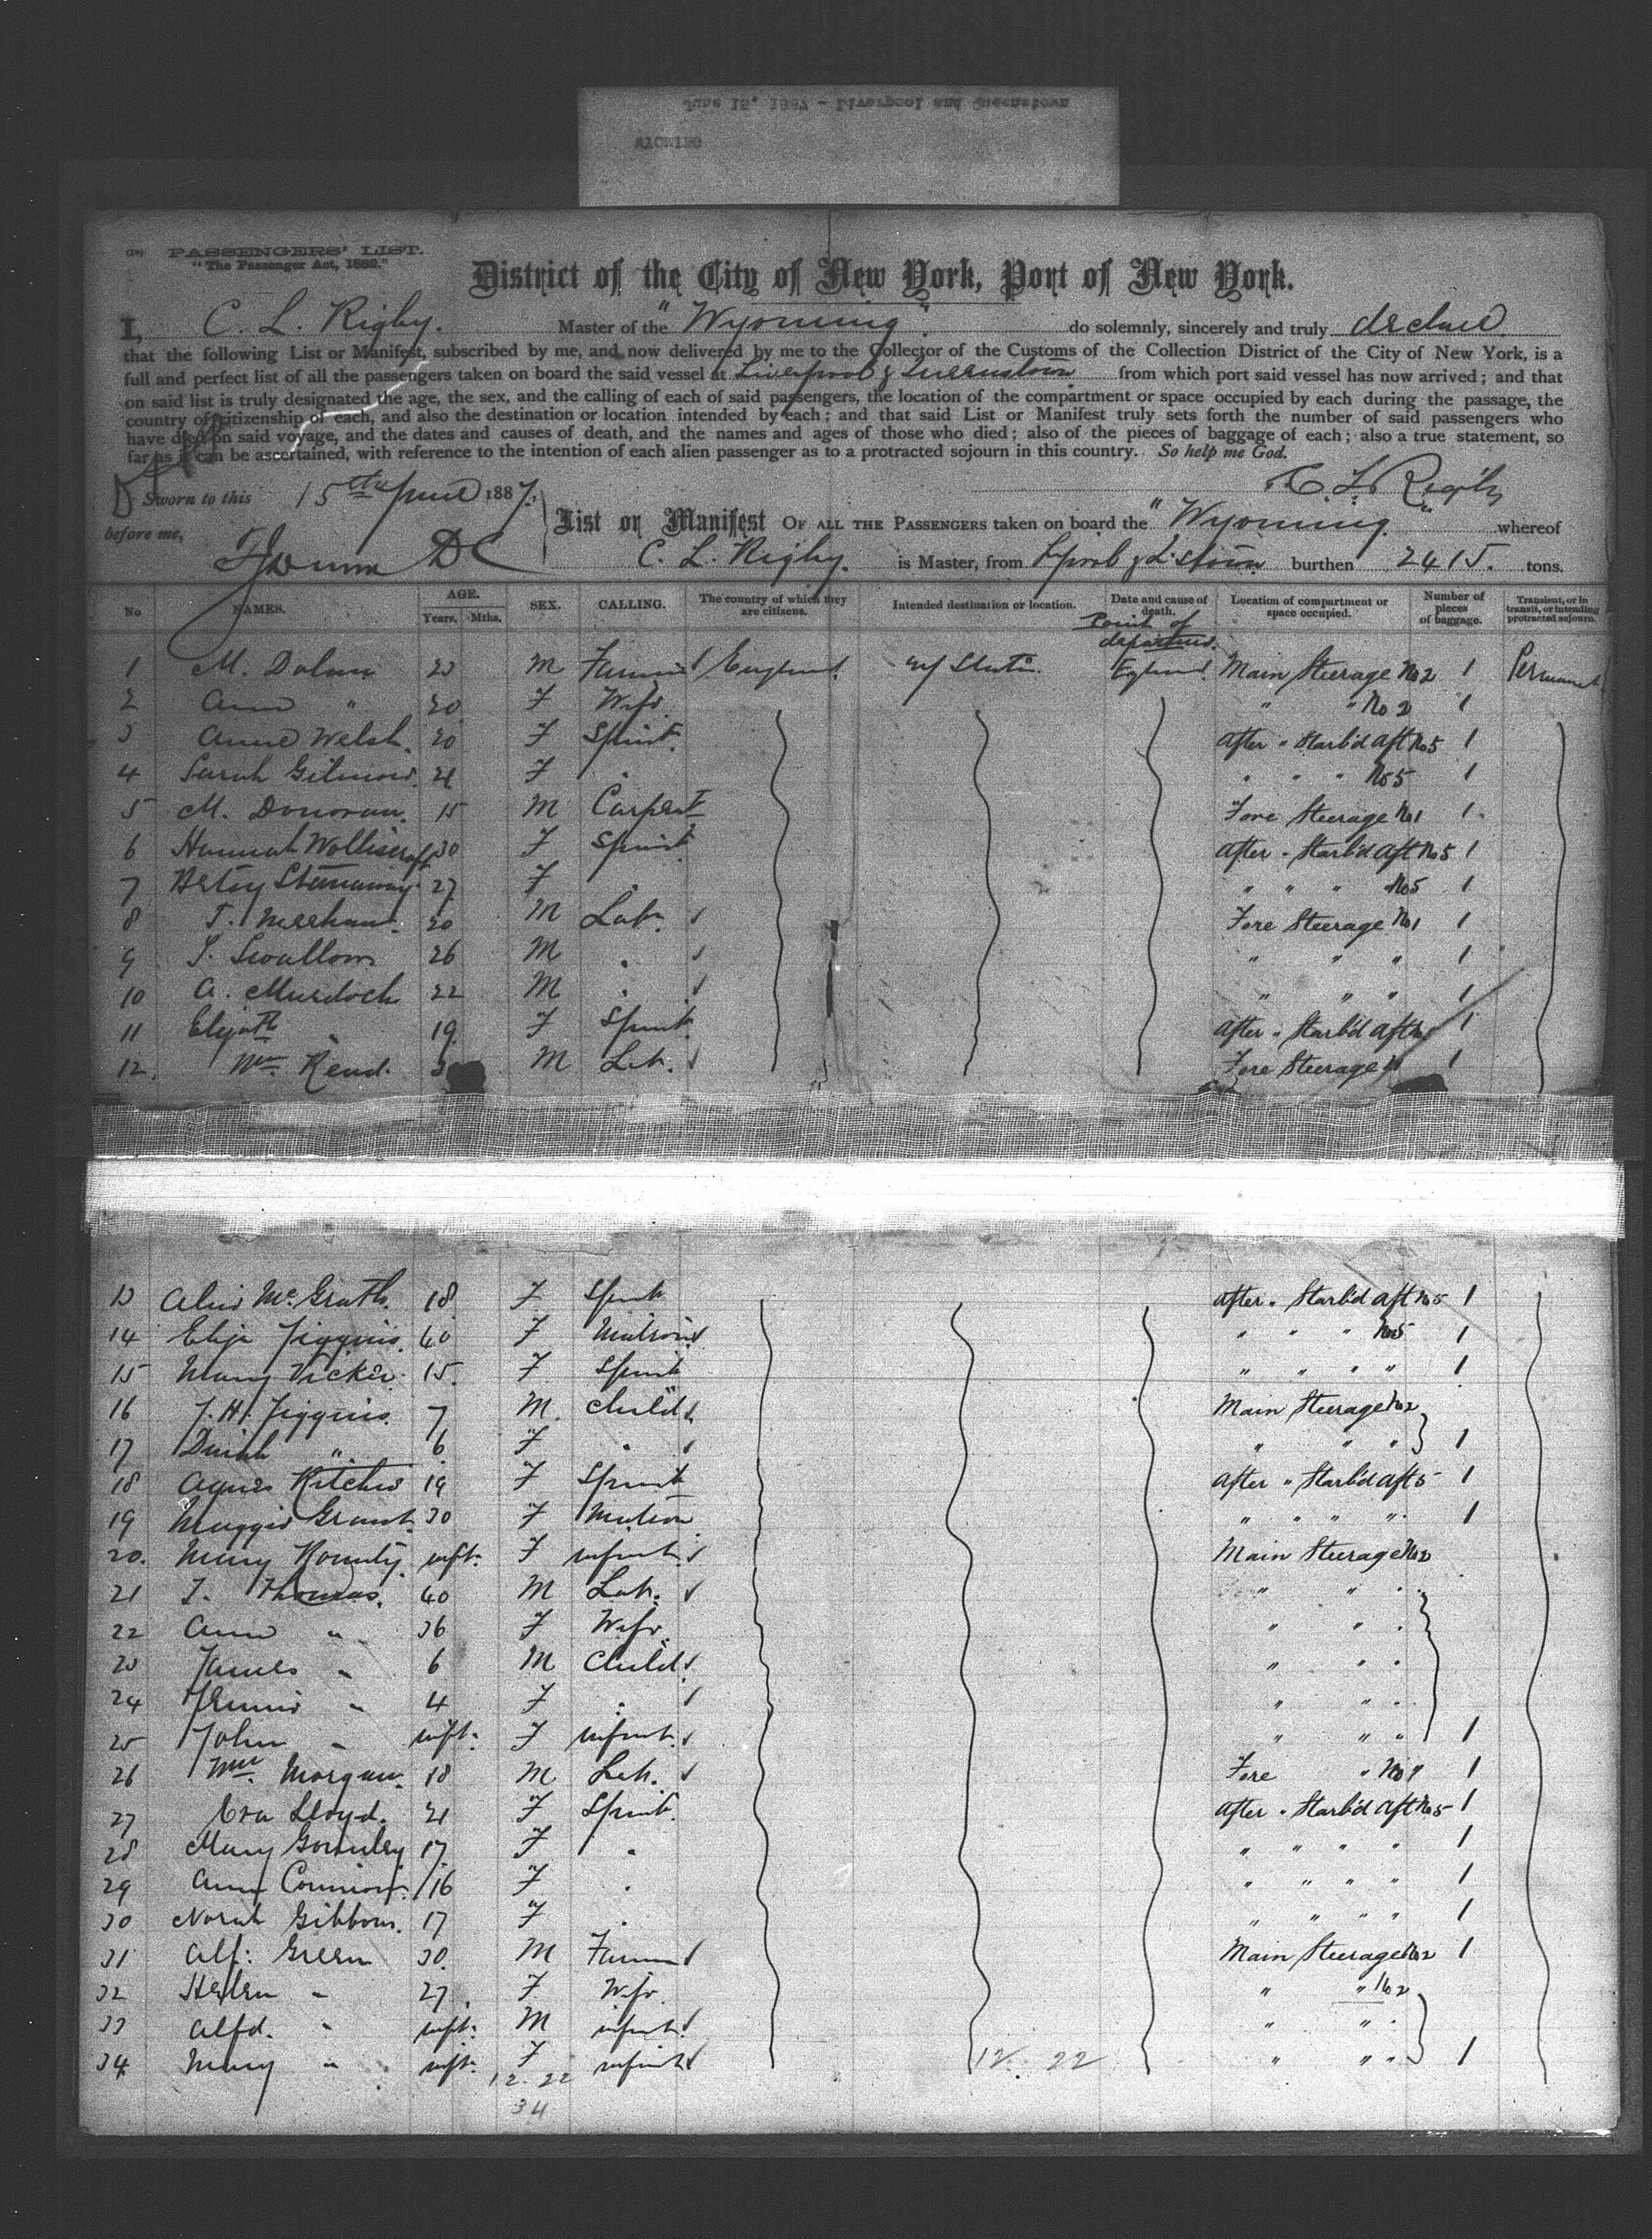 June 15, 1887 - Liverpool and Queenstown
WYOMING
(19) PASSENGERS' LIST.
"The Passenger Act, 1882."
District of the City of New York, Port of New York.
I, C. L. Rigby. Master of the "Wyoming". do solemnly, sincerely and truly declare
that the following List or Manifest, subscribed by me, and now delivered by me to the Collector of the Customs of the Collection District of the City of New York, is a
full and perfect list of all the passengers taken on board the said vessel at Liverpool & Queenstown from which port said vessel has now arrived; and that
on said list is truly designated the age, the sex, and the calling of each of said passengers, the location of the compartment or space occupied by each during the passage, the
country of citizenship of each, and also the destination or location intended by each; and that said List or Manifest truly sets forth the number of said passengers who
have died on said voyage, and the dates and causes of death, and the names and ages of those who died; also of the pieces of baggage of each; also a true statement, so
far as it can be ascertained, with reference to the intention of each alien passenger as to a protracted sojourn in this country. So help me God.
Sworn to this 15th June 1887. C. L. Rigby
before me,
List or Manifest OF ALL THE PASSENGERS taken on board the "Wyoming." whereof
C. L. Rigby. is Master, from L'pool & Q'stown burthen 2415. tons.
No NAMES. AGE. Years. Mths. SEX. CALLING. The country of which they are citizens. Intended destination or location. Date and cause of death. Location of compartment or space occupied. Number of pieces of baggage. Transient, or in transit, or intending protracted sojourn.
Point of departure.
1 M. Dolan 23 M Farmer England. U/States. England. Main Steerage No 2 1 Permanent
2 Ann " 20 F Wife " " No 2 1
3 Anne Welsh. 20 F Spinst. After " Starb'd aft No 5 1
4 Sarah Gilmore. 21 F " " " " No 5 1
5 M. Donovan. 15 M Carpent Fore Steerage No 1 1
6 Hannah Wolliscroft 30 F Spinst After " Starb'd aft No 5 1
7 Betsy 27 F " " " " No 5 1
8 T. Meehan. 20 M Lab. Fore Steerage No 1 1
9 S. Swallow 26 M " " " " 1
10 A. Murdoch 22 M " " " " 1
11 Elizath " 19 F Spinst After " Starb'd aft 1
12. Wm Read. M Lab. Fore Steerage 1
13 Alice McGrath. 18 F Spinst After " Starb'd aft No 5 1
14 Eliza Jiggins. 40 F Matron " " " No 5 1
15 Mary Vicker. 15. F Spinst " " " " 1
16 J. H. Jiggins. 7 M. Child Main Steerage No 2
17 Dinah " 6 F " " " " 1
18 Agnes Ritchie 19 F Spinst After " Starb'd aft 5 1
19 Maggie Grant. 30 F Matron " " " " 1
20. Mary inft. F infant. Main Steerage No 2
21 T. Thomas. 40 M Lab. " " "
22 Ann " 36 F Wife. " " "
23 James " 6 M Child " " "
24 Jennie " 4 F " " " "
25 John " inft. F infant. " " " 1
26 Wm. Morgan. 18 M Lab. Fore " No 1 1
27 Eva Lloyd. 21 F Spinst. After " Starb'd aft No 5 1
28 Mary Gormley 17 F " " " " " 1
29 Amy 16 F " " " " " 1
30 Norah Gibbons. 17 F " " " " " 1
31 Alf: Green 30. M Farmer Main Steerage No 2 1
32 Helen " 27. F Wife. " " No 2
33 Alfd. " inft. M infant. " " "
34 Mary " inft. F infant " " " 1
12. 22
12. 22
34